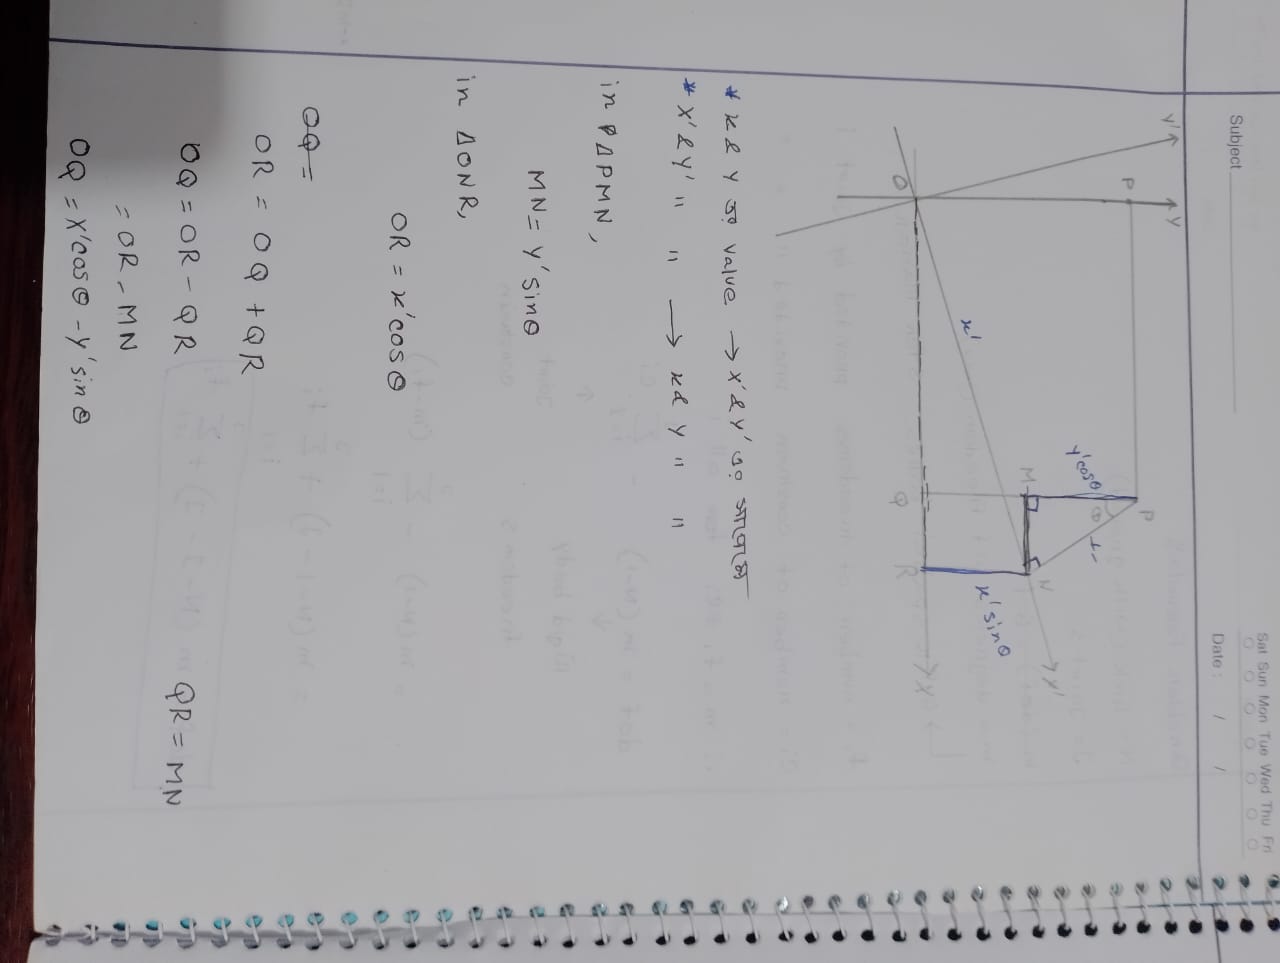 Subject
Sat Sun Mon Tue Wed Thu Fri
Date: / /
y'
y
P
P
y'cosθ
θ
y'
M
N
x'
x'sinθ
x'
O
Q
R
x
* x & y का value → x' & y' को
* x' & y' " " → x & y " "
in ΔPMN,
MN = y'sinθ
in ΔONR,
OR = x'cosθ
OQ =
OR = OQ + QR
OQ = OR - QR QR = MN
= OR - MN
OQ = x'cosθ - y'sinθ